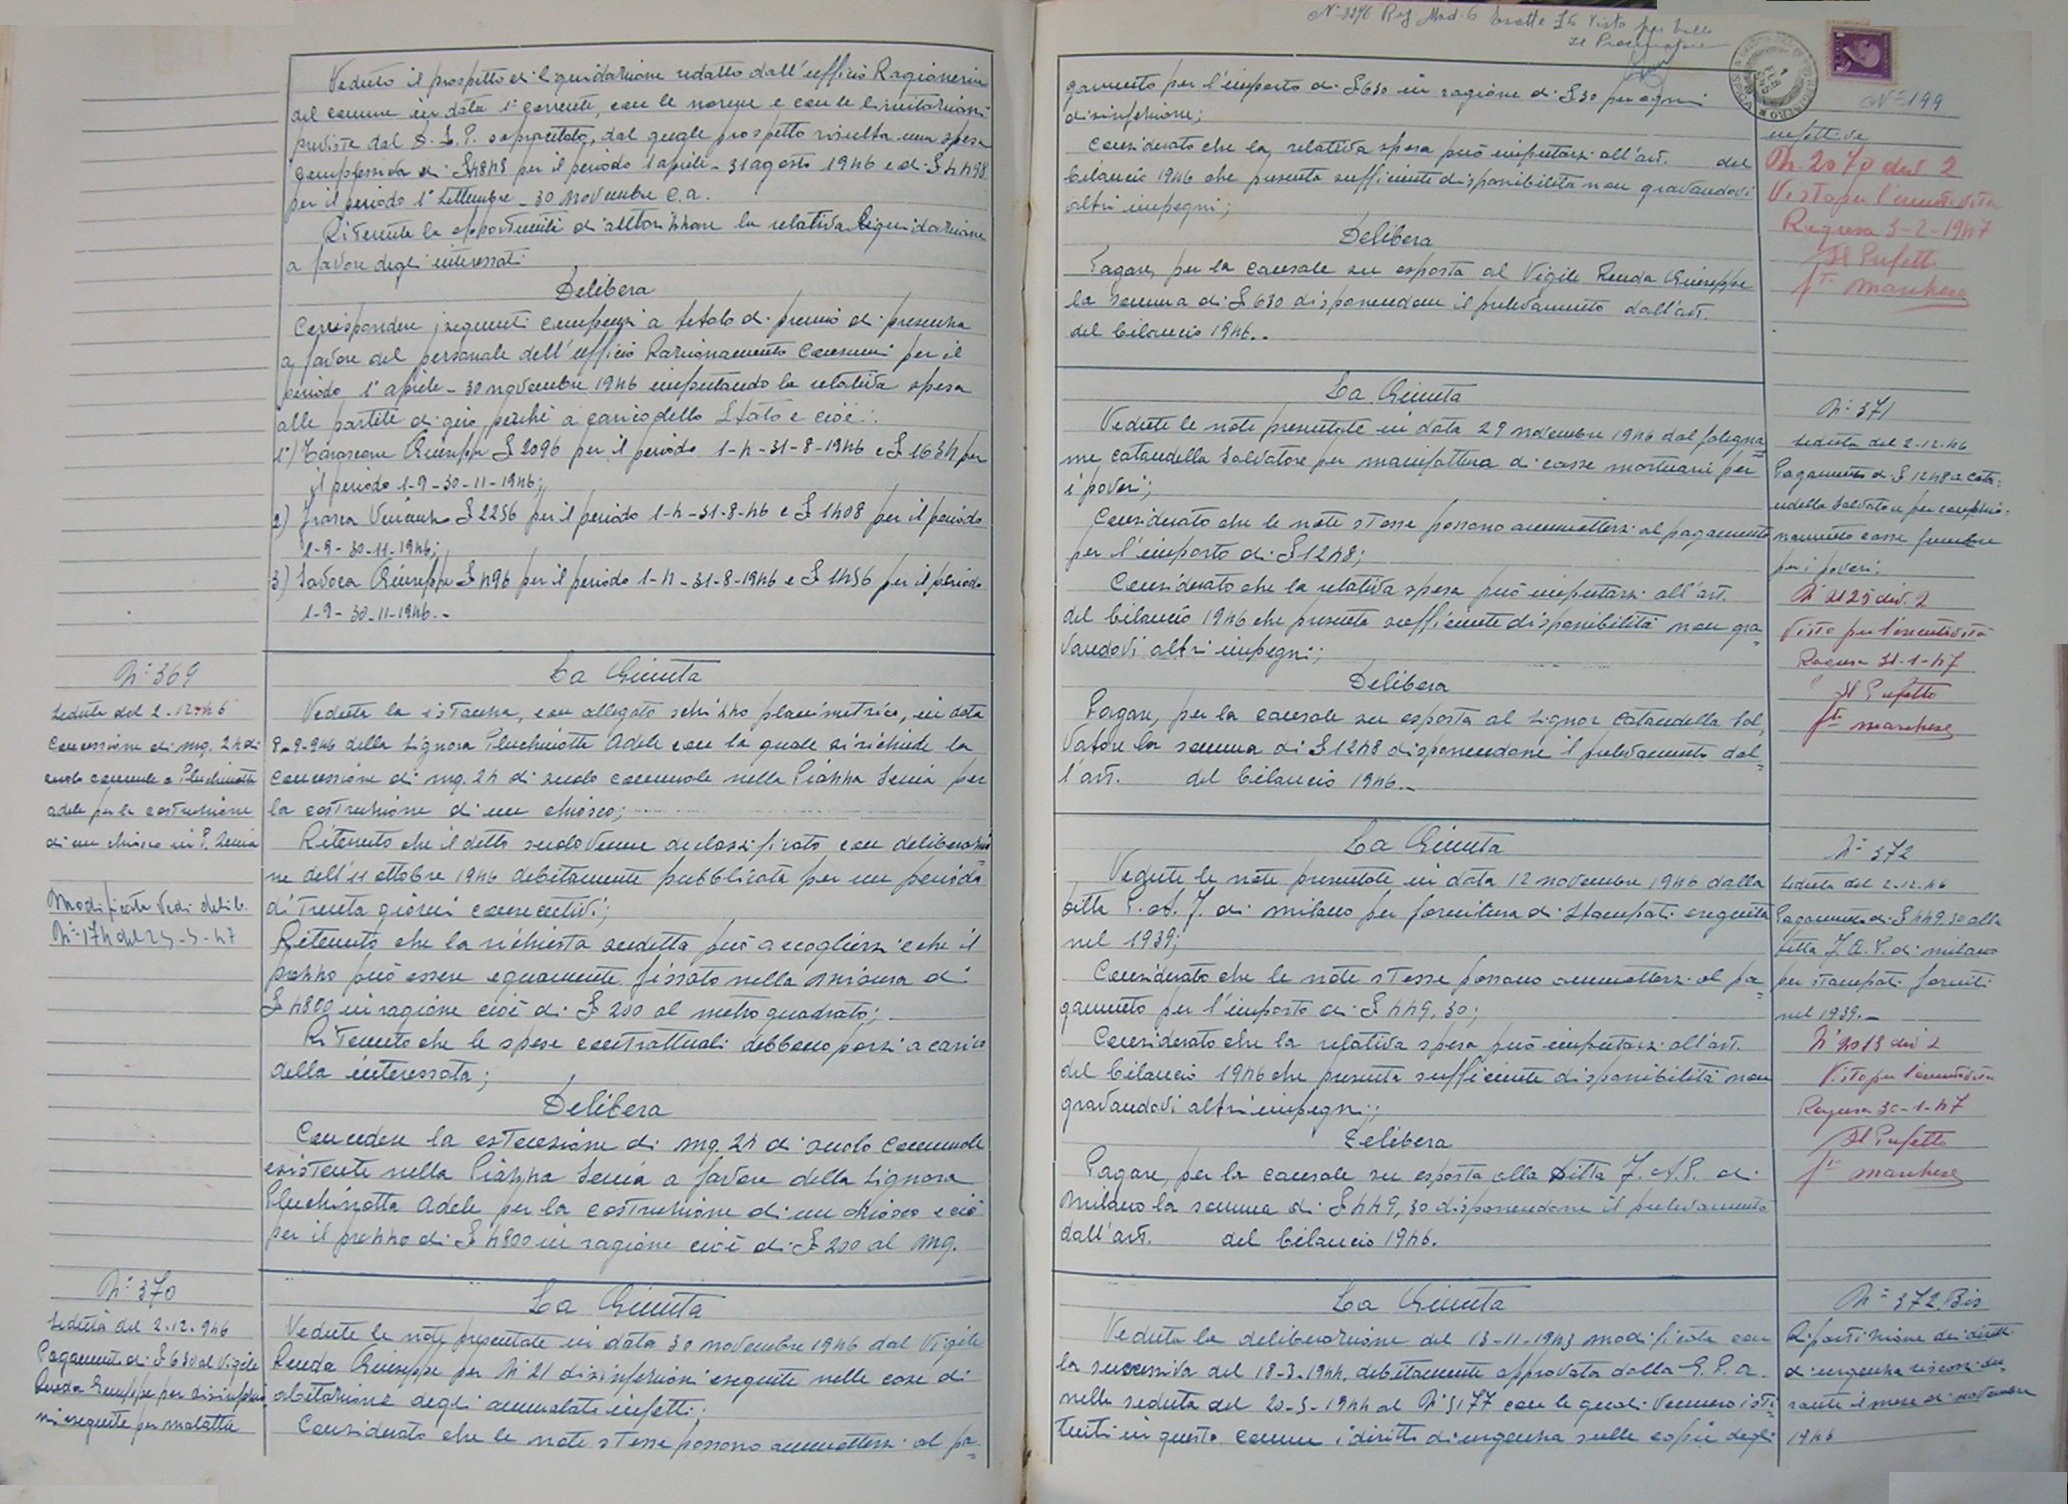 Veduto il prospetto di liquidazione redatto dall'ufficio Ragioneria
del comune in data 1° corrente, con le norme e con le limitazioni
previste dal D. L. P. sopracitato, dal quale prospetto risulta una spesa
per il periodo 1 aprile - 31 agosto 1946 e di £ 4498
per il periodo 1° Settembre - 30 Novembre c.a.
Ritenuta la opportunità di autorizzare la relativa liquidazione
a favore degli interessati
Delibera
Corrispondere i seguenti compensi a titolo di premio di presenza
a favore del personale dell'ufficio Razionamento Consumi per il
periodo 1° aprile - 30 novembre 1946 imputando la relativa spesa
alle partite di giro, perché a carico dello Stato e cioè:
1°) Giuseppe £ 2096 per il periodo 1-4-31-8-1946 e £ 1634 per
il periodo 1-9-30-11-1946;
2) Frasca Vincenzo £ 2256 per il periodo 1-4-31-8-46 e £ 1408 per il periodo
1-9-30-11-1946;
3) Savoca Giuseppe £ 496 per il periodo 1-4-31-8-1946 e £ 1456 per il periodo
1-9-30-11-1946. -
N° 369
Seduta del 2-12-46
Concessione di mq. 24 di
suolo comunale a Pluchinotta
Adele per la costruzione
di un chiosco in P. Senia
Modificata Vedi delib.
N° 174 del 25-5-47
La Giunta
Veduta la istanza, con allegato schizzo planimetrico, in data
8-9-946 della Signora Pluchinotta Adele con la quale si richiede la
concessione di mq. 24 di suolo comunale nella Piazza Senia per
la costruzione di un chiosco;
Ritenuto che il detto suolo venne declassificato con deliberazio=
ne dell'11 ottobre 1946 debitamente pubblicata per un periodo
di trenta giorni consecutivi;
Ritenuto che la richiesta suddetta può accogliersi e che il
prezzo può essere equamente fissato nella misura di
£ 4800 in ragione cioè di £ 200 al metro quadrato;
Ritenuto che le spese contrattuali debbono porsi a carico
della interessata;
Delibera
Concedere la estensione di mq. 24 di suolo comunale
esistente nella Piazza Senia a favore della Signora
Pluchinotta Adele per la costruzione di un chiosco e ciò
per il prezzo di £ 4800 in ragione cioè di £ 200 al mq.
N° 370
Seduta del 2-12-946
Pagamento di £ 630 al Vigile
Renda Giuseppe per disinfezio
ni eseguite per malattie
La Giunta
Vedute le note presentate in data 30 novembre 1946 dal Vigile
Renda Giuseppe per N° 21 disinfezioni eseguite nelle case di
abitazione degli ammalati infetti;
Considerato che le note stesse possono ammettersi al pa=
N° 3296 Reg. Mod. 6 Visto per bollo
Il Procuratore
gamento per l'importo di £ 630 in ragione di £ 30 per ogni
disinfezione;
Considerato che la relativa spesa può imputarsi all'art. del
bilancio 1946 che presenta sufficiente disponibilità non gravandovi
altri impegni;
Delibera
Pagare, per la causale su esposta al Vigile Renda Giuseppe
la somma di £ 630 disponendone il prelevamento dall'art.
del bilancio 1946..
N° 199
infettive
N. 2070 div 2
Visto per l'esecutività
Ragusa 3-2-1947
Il Prefetto
fto Marchese
La Giunta
Vedute le note presentate in data 29 novembre 1946 dal falegna
me Cataudella Salvatore per manifattura di casse mortuarie per
i poveri;
Considerato che le note stesse possono ammettersi al pagamento
per l'importo di £ 1248;
Considerato che la relativa spesa può imputarsi all'art.
del bilancio 1946 che presenta sufficiente disponibilità non gra=
vandovi altri impegni;
Delibera
Pagare, per la causale su esposta al Signor Cataudella Sal=
vatore la somma di £ 1248 disponendone il prelevamento dal=
l'art. del bilancio 1946. -
N° 371
Seduta del 2-12-46
Pagamento di £ 1248 a Cata=
udella Salvatore per confezio=
namento casse funebre
per i poveri.
N 2125 div. 2
Visto per l'esecutività
Ragusa 31-1-47
Il Prefetto
fto Marchese
La Giunta
Vedute le note presentate in data 12 novembre 1946 dalla
Ditta di Milano per fornitura di stampati eseguita
nel 1939;
Considerato che le note stesse possono ammettersi al pa=
gamento per l'importo di £ 449,30;
Considerato che la relativa spesa può imputarsi all'art.
del bilancio 1946 che presenta sufficiente disponibilità non
gravandovi altri impegni;
Delibera
Pagare, per la causale su esposta alla Ditta di
Milano la somma di £ 449,30 disponendone il prelevamento
dall'art. del bilancio 1946.
N° 372
Seduta del 2-12-46
Pagamento di £ 449.30 alla
Ditta di Milano
per stampati forniti
nel 1939. -
N° 2013 div 2
Visto per l'esecutività
Ragusa 30-1-47
Il Prefetto
fto Marchese
La Giunta
Veduta la deliberazione del 13-11-1943 modificata con
la successiva del 18-3-1944, debitamente approvata dalla G. P. A.
nella seduta del 20-5-1944 al N° 5177 con le quali vennero isti=
tuiti in questo comune i diritti di urgenza sulle copie degli
N° 372 Bis
Ripartizione dei diritti
d'urgenza riscossi du
rante il mese di novembre
1946